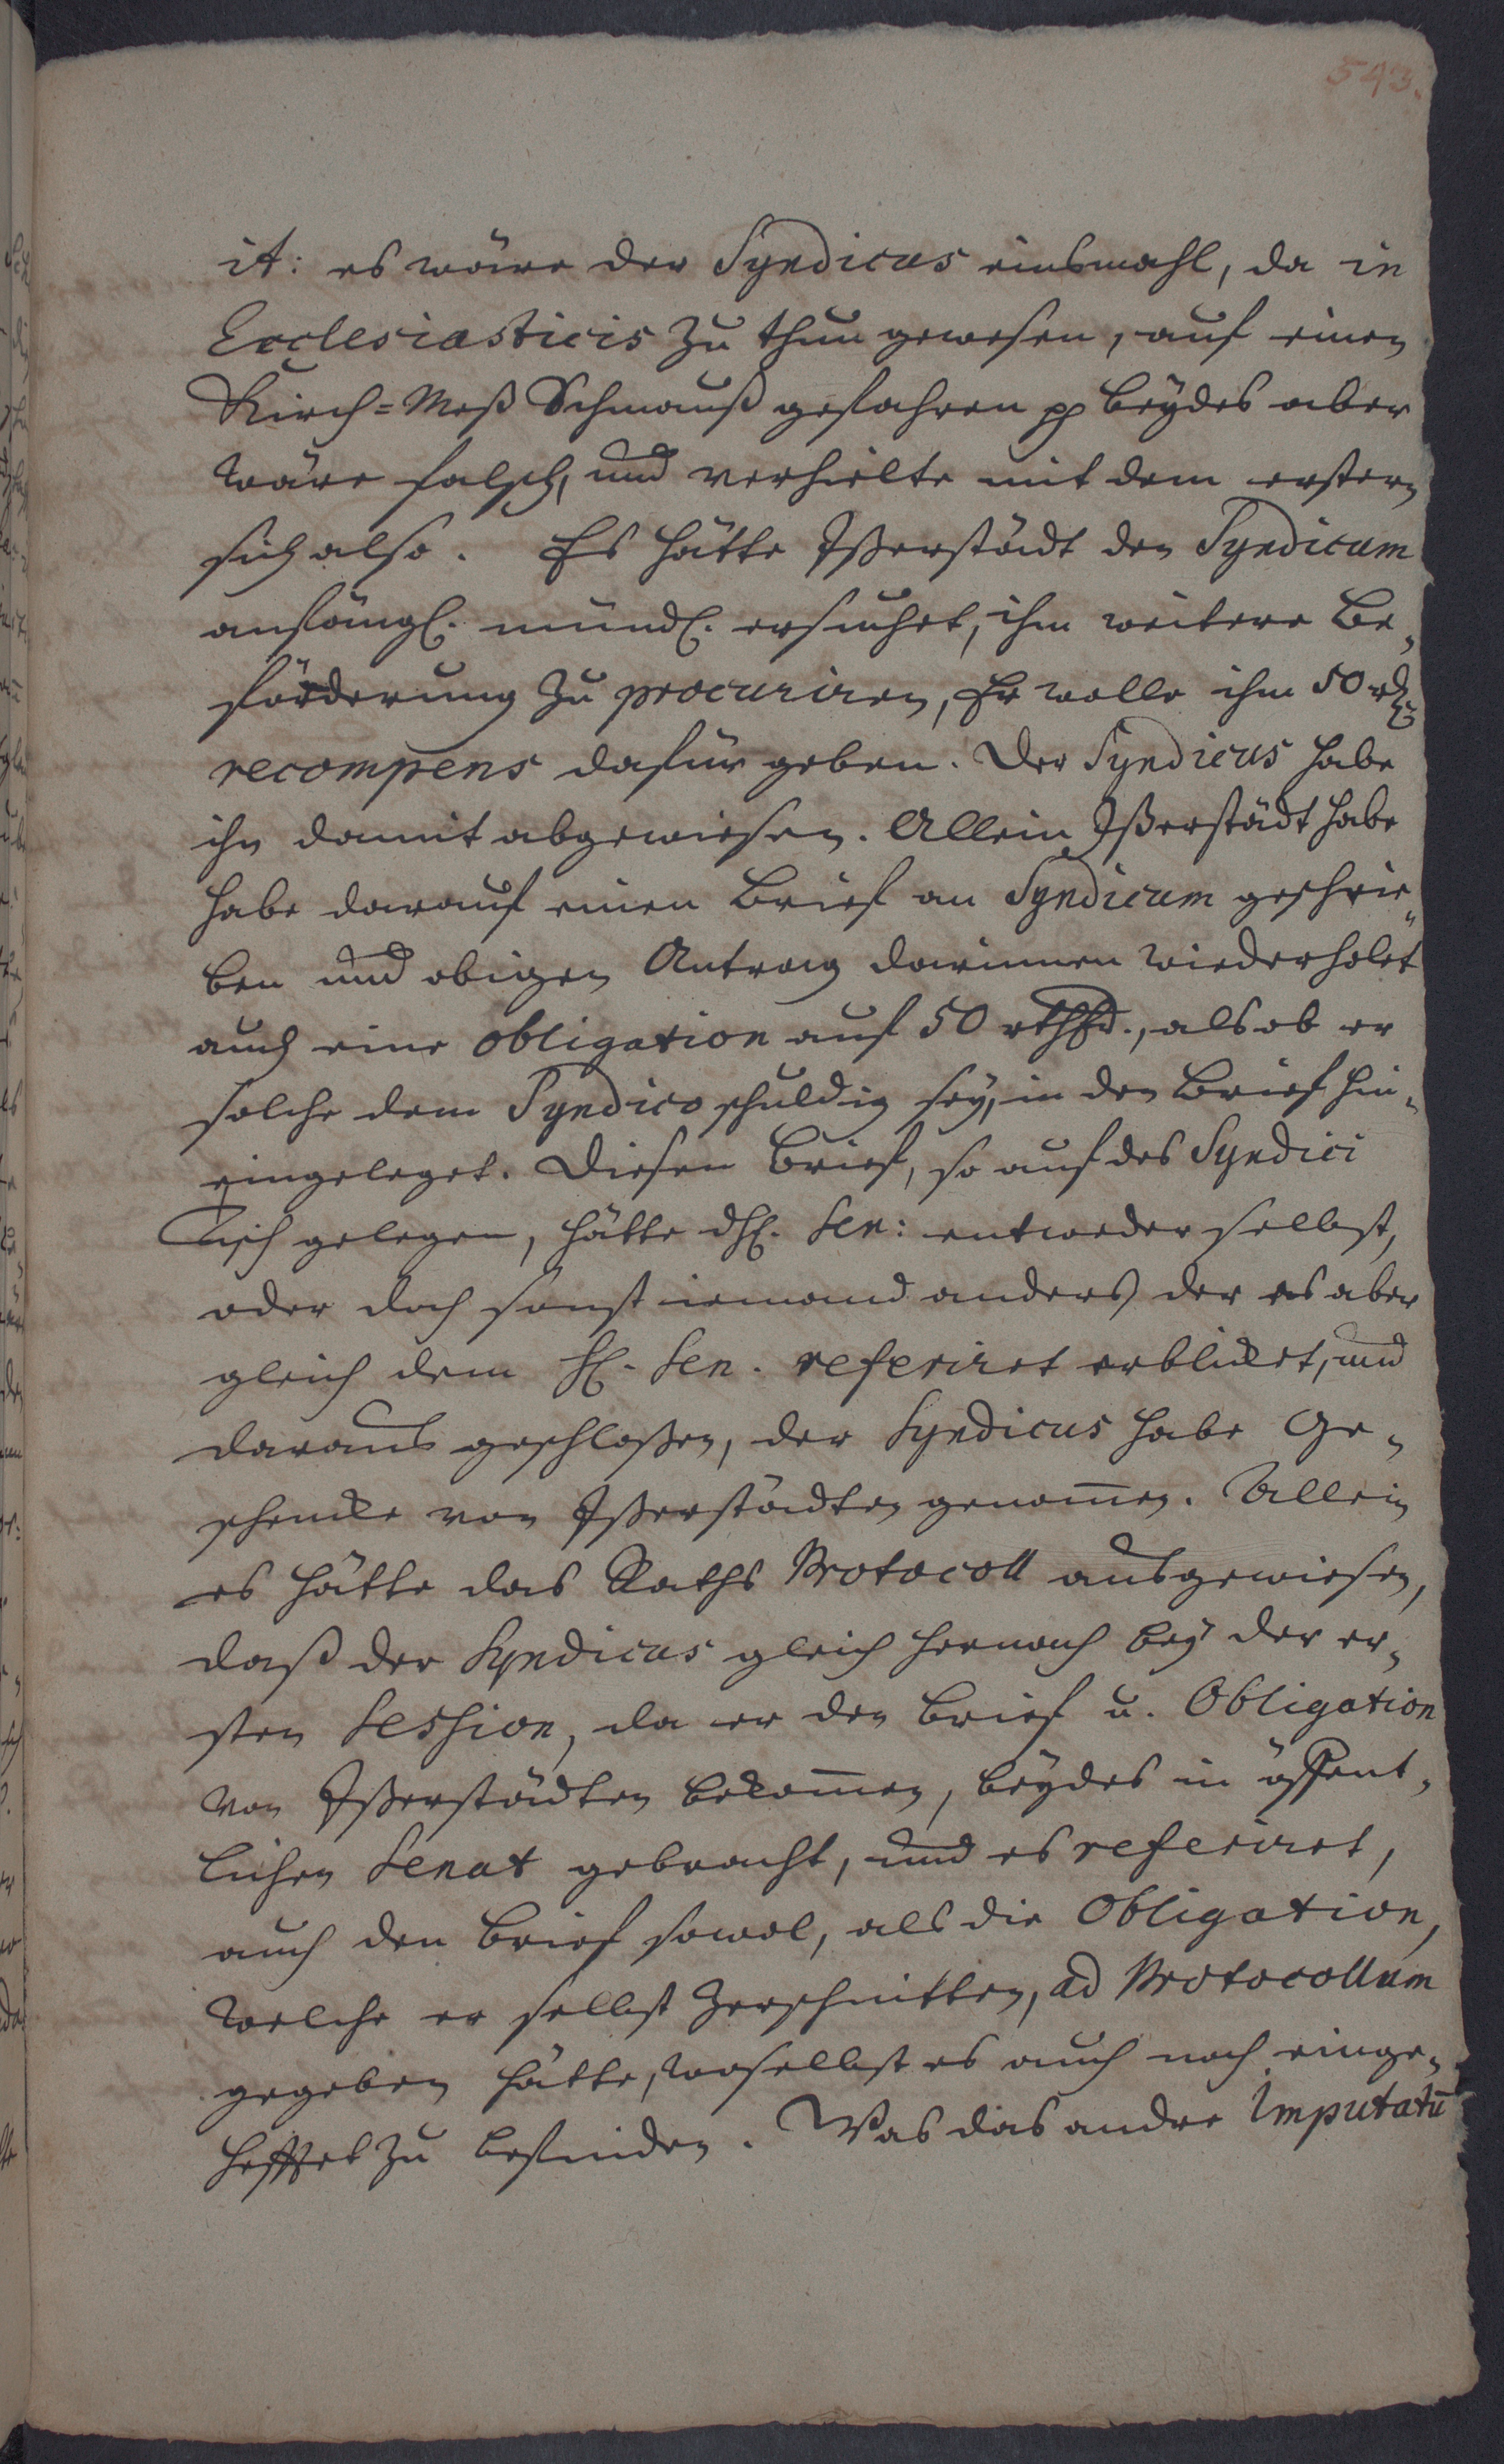 543.
it: es wäre der Syndicus einsmahl, da in
Ecclesiasticis zu thun gewesen, auf einen
Kirch=Meß Schmauß gefahren pp beydes aber
wäre falsch, und verhielte mit dem erstern
sich also. Es hätte Ißerstädt den Syndicum
anfängl. mündl. ersuchet, ihm weitere Be„
förderung zu procuriren, Er wolle ihm 50 rthl.
recompens dafür geben. Der Syndicus habe
ihn damit abgewiesen. Allein Ißerstädt habe
habe darauf einen Brief an Syndicum geschrie„
ben und obigen Antrag darinnen wiederholet
auch eine obligation auf 50 rthl., als ob er
solche dem Syndico schuldig sey, in den Brief hin„
eingeleget. Diesen Brief, so auf des Syndici
Tisch gelegen, hätte dH. Sen: entweder selbst,
oder doch sonst iemand anders, der es aber
gleich dem H. Sen. referiret erblicket, und
daraus geschloßen, der Syndicus habe Ge„
schencke von Ißerstädten genom̄en. Allein
es hätte das Raths Protocoll ausgewiesen,
daß der Syndicus gleich hernach bey der er„
sten Session, da er den Brief u. Obligation
von Ißerstädten bekom̄en, beydes in öffent„
lichen Senat gebracht, und es referiret,
auch den Brief sowol, als die Obligation,
welche er selbst zerschnitten, ad Protocollum
gegeben hätte, woselbst es auch noch einge„
hefftet zu befinden. Was das andre Imputatū